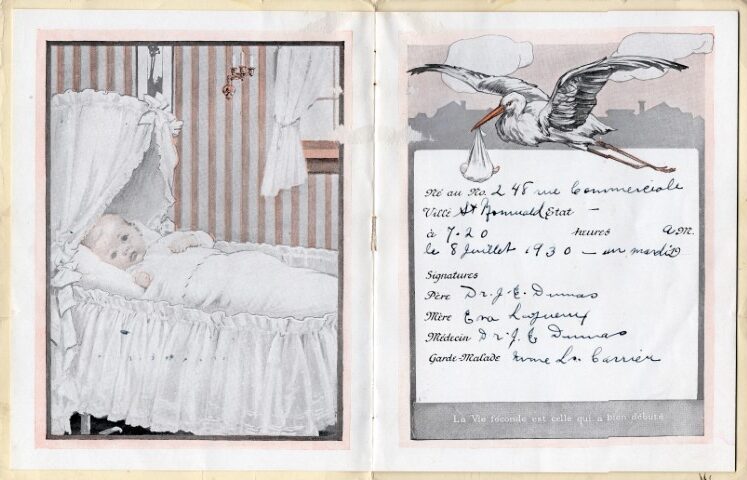 Né au No. 248 rue Commerciale
Ville St Romuald Etat —
à 7.20 heures A.M.
le 8 Juillet 1930 — un mardi 19
Signatures
Père Dr. J. E. Dumas
Mère Eva
Médecin Dr. J. E Dumas
Garde-Malade Mme Carrier
La Vie féconde est celle qui a bien débuté